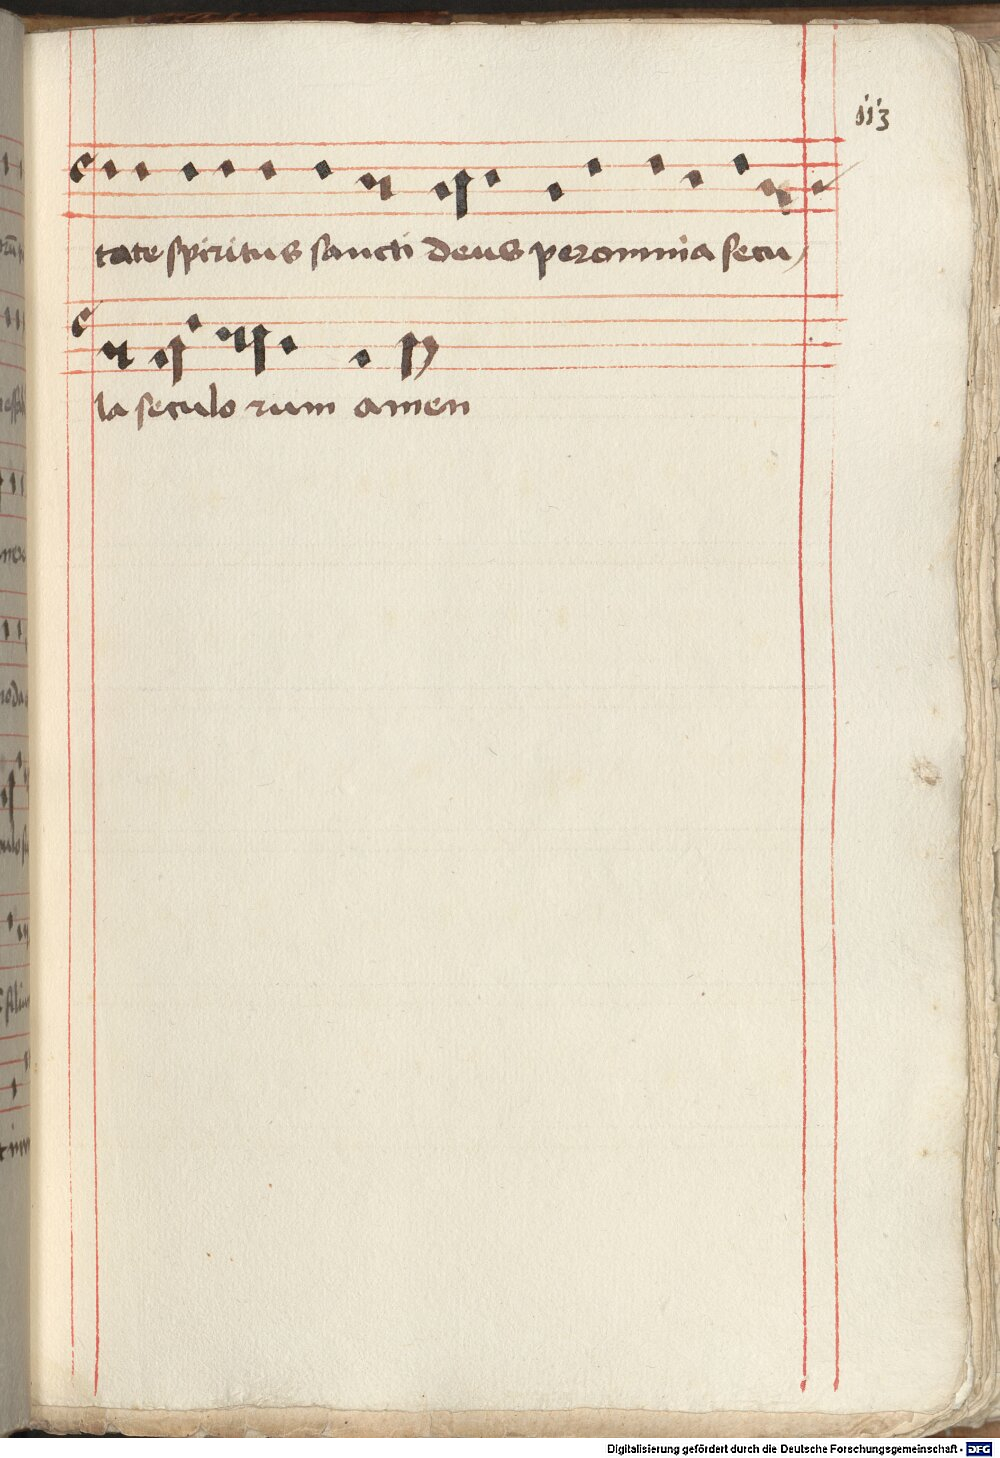 113
tate spiritus sancti deus per omnia secu
la seculo rum amen
Digitalisierung gefördert durch die Deutsche Forschungsgemeinschaft - DFG